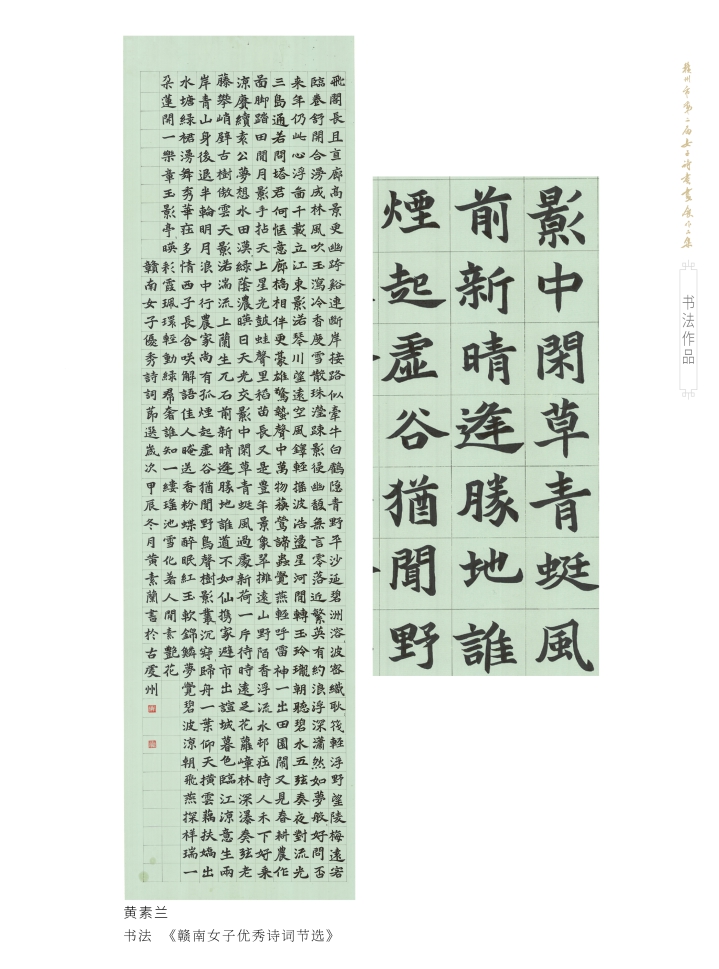 飛閣長且直廊高景更幽跨谿連斷岸接路似牽牛白鶴隐青野平沙延碧洲溶波容纖耿筏輕浮野望陵梅遠客
臨巻舒開合湧成林風吹玉瀉冷香度雪散珠瀅疎影徑幽馥無言零落近繁英有約浪浮深瀟然如夢般好問否
来年仍此心浮畣千載立江東影渃琴川望遠空風鐸輕摇波浩盪星河閒轉玉玲瓏朝聽碧水五弦奏夜對流光
三島通若問塔君何愜意廊橋相伴更豪雄驚蟄聲中萬物蘓鶯諦蟲覺燕輕呼雷神一出田園鬧又見春耕農作
啚脚踏田間月影手拈天上星光鼓蛙聲里稻苗長又是豊年景象翠擁遠山野陌香浮流水邨莊時人未下好乘
涼賡續素公夢想水田漠綠蔭濃暎日天光交影中閑草青蜓風過處新荷一片待時遠足花蘿嶂林深瀑奏弦老
藤攀峭壁古樹傲雲天影渃湍流上蘭生兀石前新晴逢勝地誰道不如仙携家避市出諠城暮色臨江涼意生兩
岸青山身後退半輪明月浪中行農家尚有孤煙起虚谷猶聞野鳥聲樹影叢沉穿歸舟一葉仰天横雲藕扶嬌出
水塘綠裙湧舞秀華莊多情西子長含咲解語佳人晻送香粉蝶醉眠紅玉軟錦鱗夢覺碧波涼朝飛燕探祥瑞一
朵蓮開一樂章玉影亭暎彩霞珮環輕動綠帬奢誰知一縷瑤池雪化著人間素艷花
贛南女子優秀詩詞節選歲次甲辰冬月黄素蘭書於古虔州
影中閑草青蜓風
前新晴逢勝地誰
煙起虚谷猶聞野
赣州市第二届女子诗书画展作品集
书法作品
黄素兰
书法 《赣南女子优秀诗词节选》